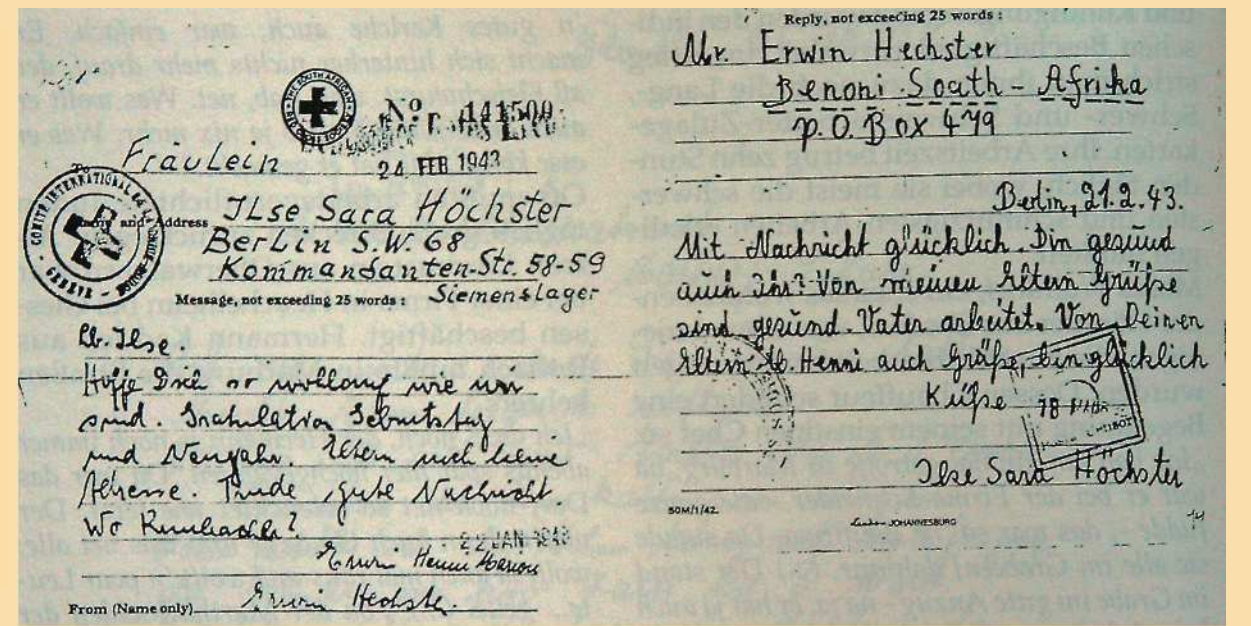 THE SOUTH AFRICAN
No. r. 141500
24 FEB 1943
COMITÉ INTERNATIONAL
GENÈVE
To
Fräulein
Name and Address
Ilse Sara Höchster
Berlin S.W 68
Kommandanten-Str. 58-59
Siemenslager
Message, not exceeding 25 words :
Lb. Ilse
Hoffe Dich so wohlauf wie wir
sind. Gratulation Geburtstag
und Neujahr. Eltern noch keine
Adresse. Trude gute Nachricht
Wo
22 JAN 1943
Erwin Henni
From (Name only)
Erwin Hechster.
Reply, not exceeding 25 words :
Mr. Erwin Hechster
Benoni South-Afrika
P.O. Box 479
Berlin, 21.2.43.
Mit Nachricht glücklich. Bin gesund
auch Ihr? Von meinen Eltern Grüße
sind gesund. Vater arbeitet. Von Deinen
Eltern lb. Henni auch Grüße, bin glücklich
Küße
18
Ilse Sara Höchster
50M/1/42.
JOHANNESBURG
14